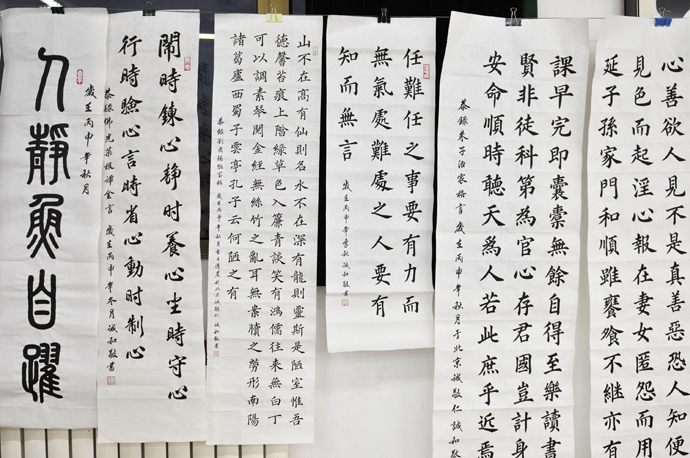 心善欲人見不是真善惡恐人知便
見色而起淫心報在妻女匿怨而用
延子孫家門和順雖饔飧不繼亦有
課早完即囊橐無餘自得至樂讀書
賢非徒科第為官心存君國豈計身
安命順時聽天為人若此庶乎近焉
恭錄朱子治家格言 歲在丙申年秋月于北京誠敬仁誠和敬
任難任之事要有力而
無氣處難處之人要有
知而無言
歲在丙申年季秋誠和敬書
山不在高有仙則名水不在深有龍則靈斯是陋室惟吾
德馨苔痕上階綠草色入簾青談笑有鴻儒往來無白丁
可以調素琴閱金經無絲竹之亂耳無案牘之勞形南陽
諸葛廬西蜀子雲亭孔子云何陋之有
恭錄劉禹錫陋室銘 歲在丙申年秋月 誠和敬書
鬧時鍊心靜時養心坐時守心
行時驗心言時省心動時制心
恭錄佛光菜根譚金言 歲在丙申年冬月誠和敬書
人靜魚自躍
歲在丙申年秋月